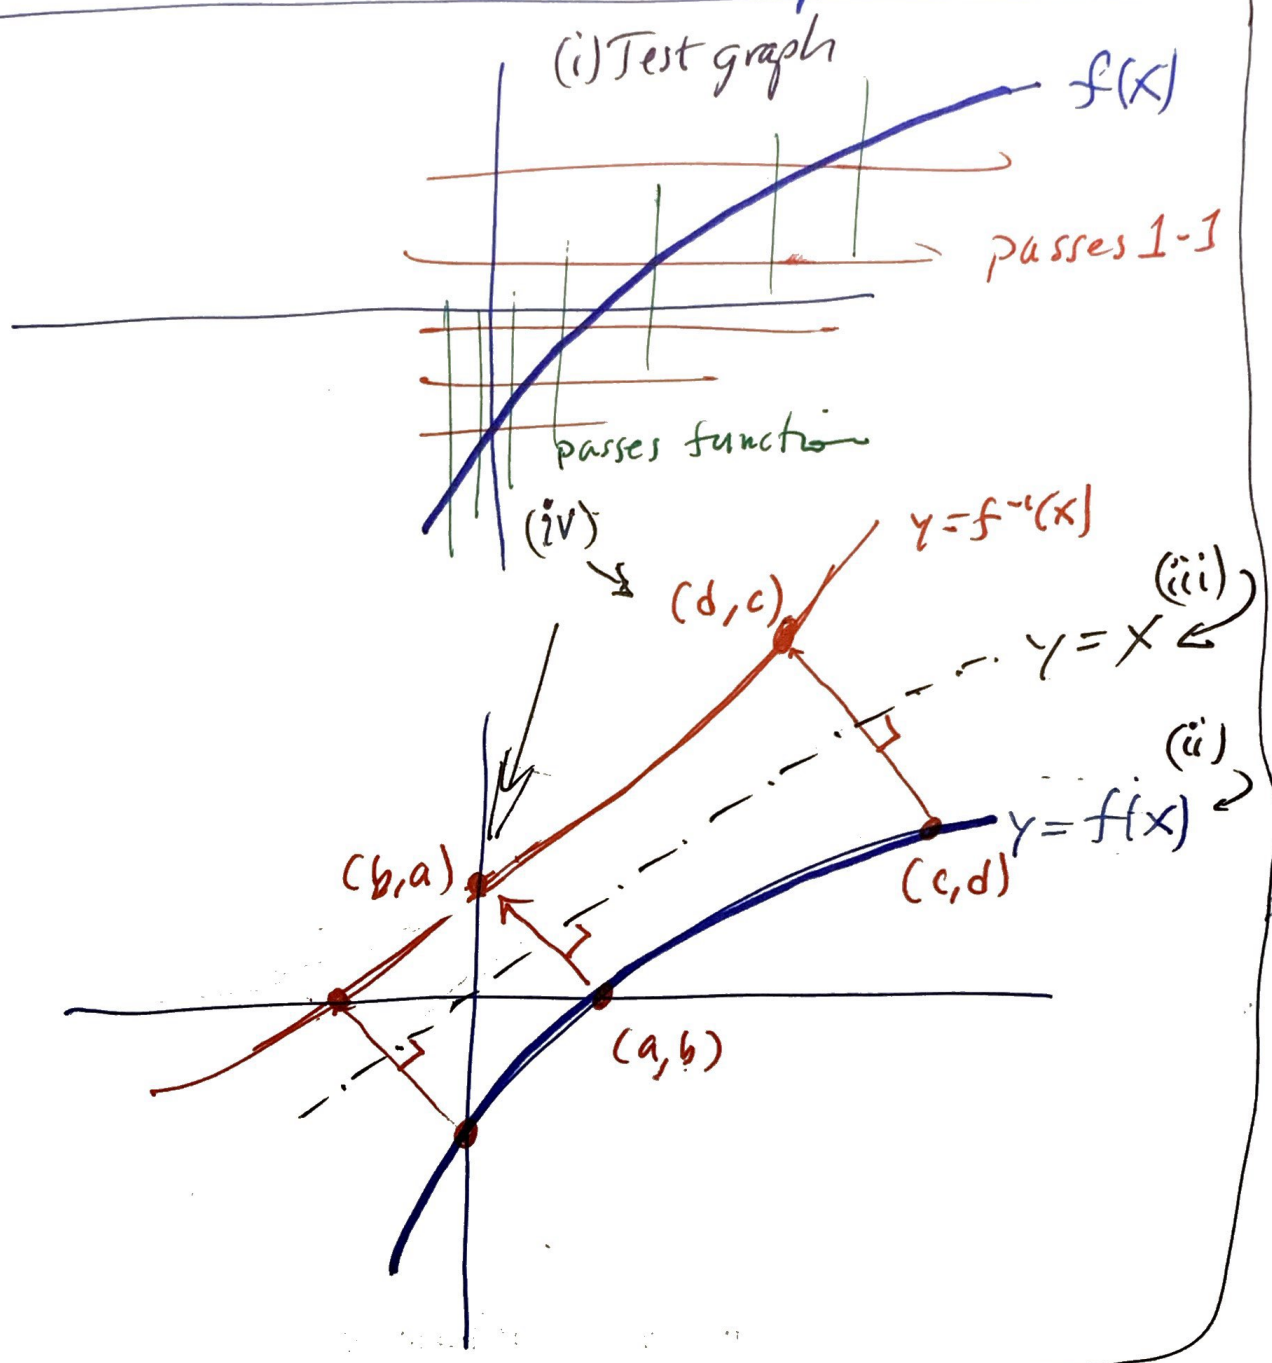 (i) Test graph
f(x)
passes 1-1
passes function
(iv)
y = f⁻¹(x)
(d,c)
(iii)
y = x
(ii)
y = f(x)
(b,a)
(c,d)
(a,b)